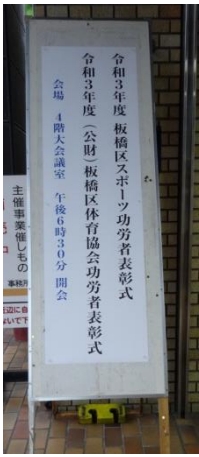 令和3年度 板橋区スポーツ功労者表彰式
令和3年度 (公財)板橋区体育協会功労者表彰式
会場 4階大会議室 午後6時30分 開会
主催事業催しもの
事務所